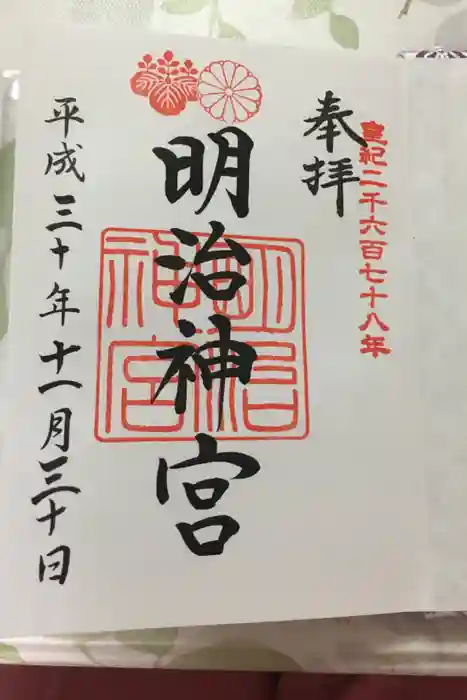 皇紀二千六百七十八年
奉拝
明治神宮
明治神宮
平成三十年十一月三十日